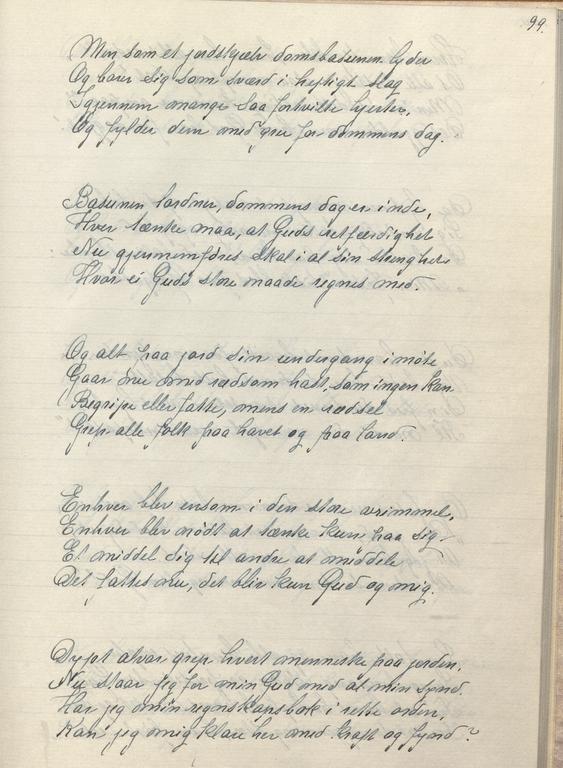 99.
Men som et jordskjælv domsbasunen lyder
Og borer sig som sværd i heftigt slag
Igjennem mange saa fortvilte hjerter,
Og fylder dem med gru for dommens dag.
Basunen tordner, dommens dag er inde,
Hver tænke maa, at Guds retfærdighet
Nu gjennemføres skal i al sin strenghet
Hvor ei Guds store naade regnes med.
Og alt paa jord sin undergang imøte
Gaar nu med rædsom hast, som ingen kan
Begripe eller fatte, mens en rædsel
Grep alle folk paa havet og paa land.
Enhver blev ensom i den store vrimmel,
Enhver blev nødt at tænke kun paa sig
Et middel sig til andre at meddele
Det fattes nu, det blir kun Gud og mig.
Dypt alvor grep hvert menneske paa jorden,
Nu staar jeg for min Gud med al min synd.
Har jeg min regnskapsbok i rette orden,
Kan jeg mig klare her med kraft og fynd?